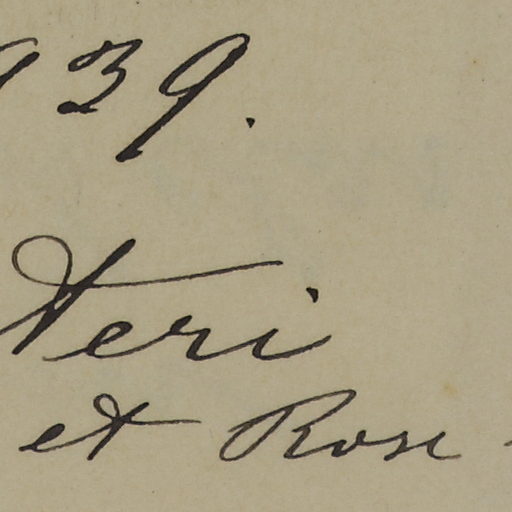 939.
teri
et Rose